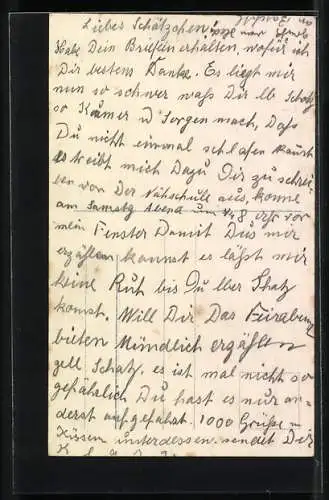 Liebes Schätzchen
Habe Dein Brieflein erhalten, wofür ich
Dir bestens Danke. Es liegt mir
nun so schwer waß Dir lb Schatz
so Kumer u Sorgen mach, Daß
Du nicht einmal schlafen kanst
es treibt mich Dazu Dir zu schrei-
ben von Der Nähschulle aus, komme
am Samstg Abend um ½8. erst vor
mein Fenster Damit Du's mir
erzählen kannst es läßt mir
keine Ruh bis Du lber Shatz
komst. Will Dir Das Feirabend
bieten Mündlich erzählen
gell Schatz. es ist mal nicht so
gefährlich Du hast es nur an-
derst aufgefahst. 1000 Grüße u
Küssen unterdessen sendet Dir